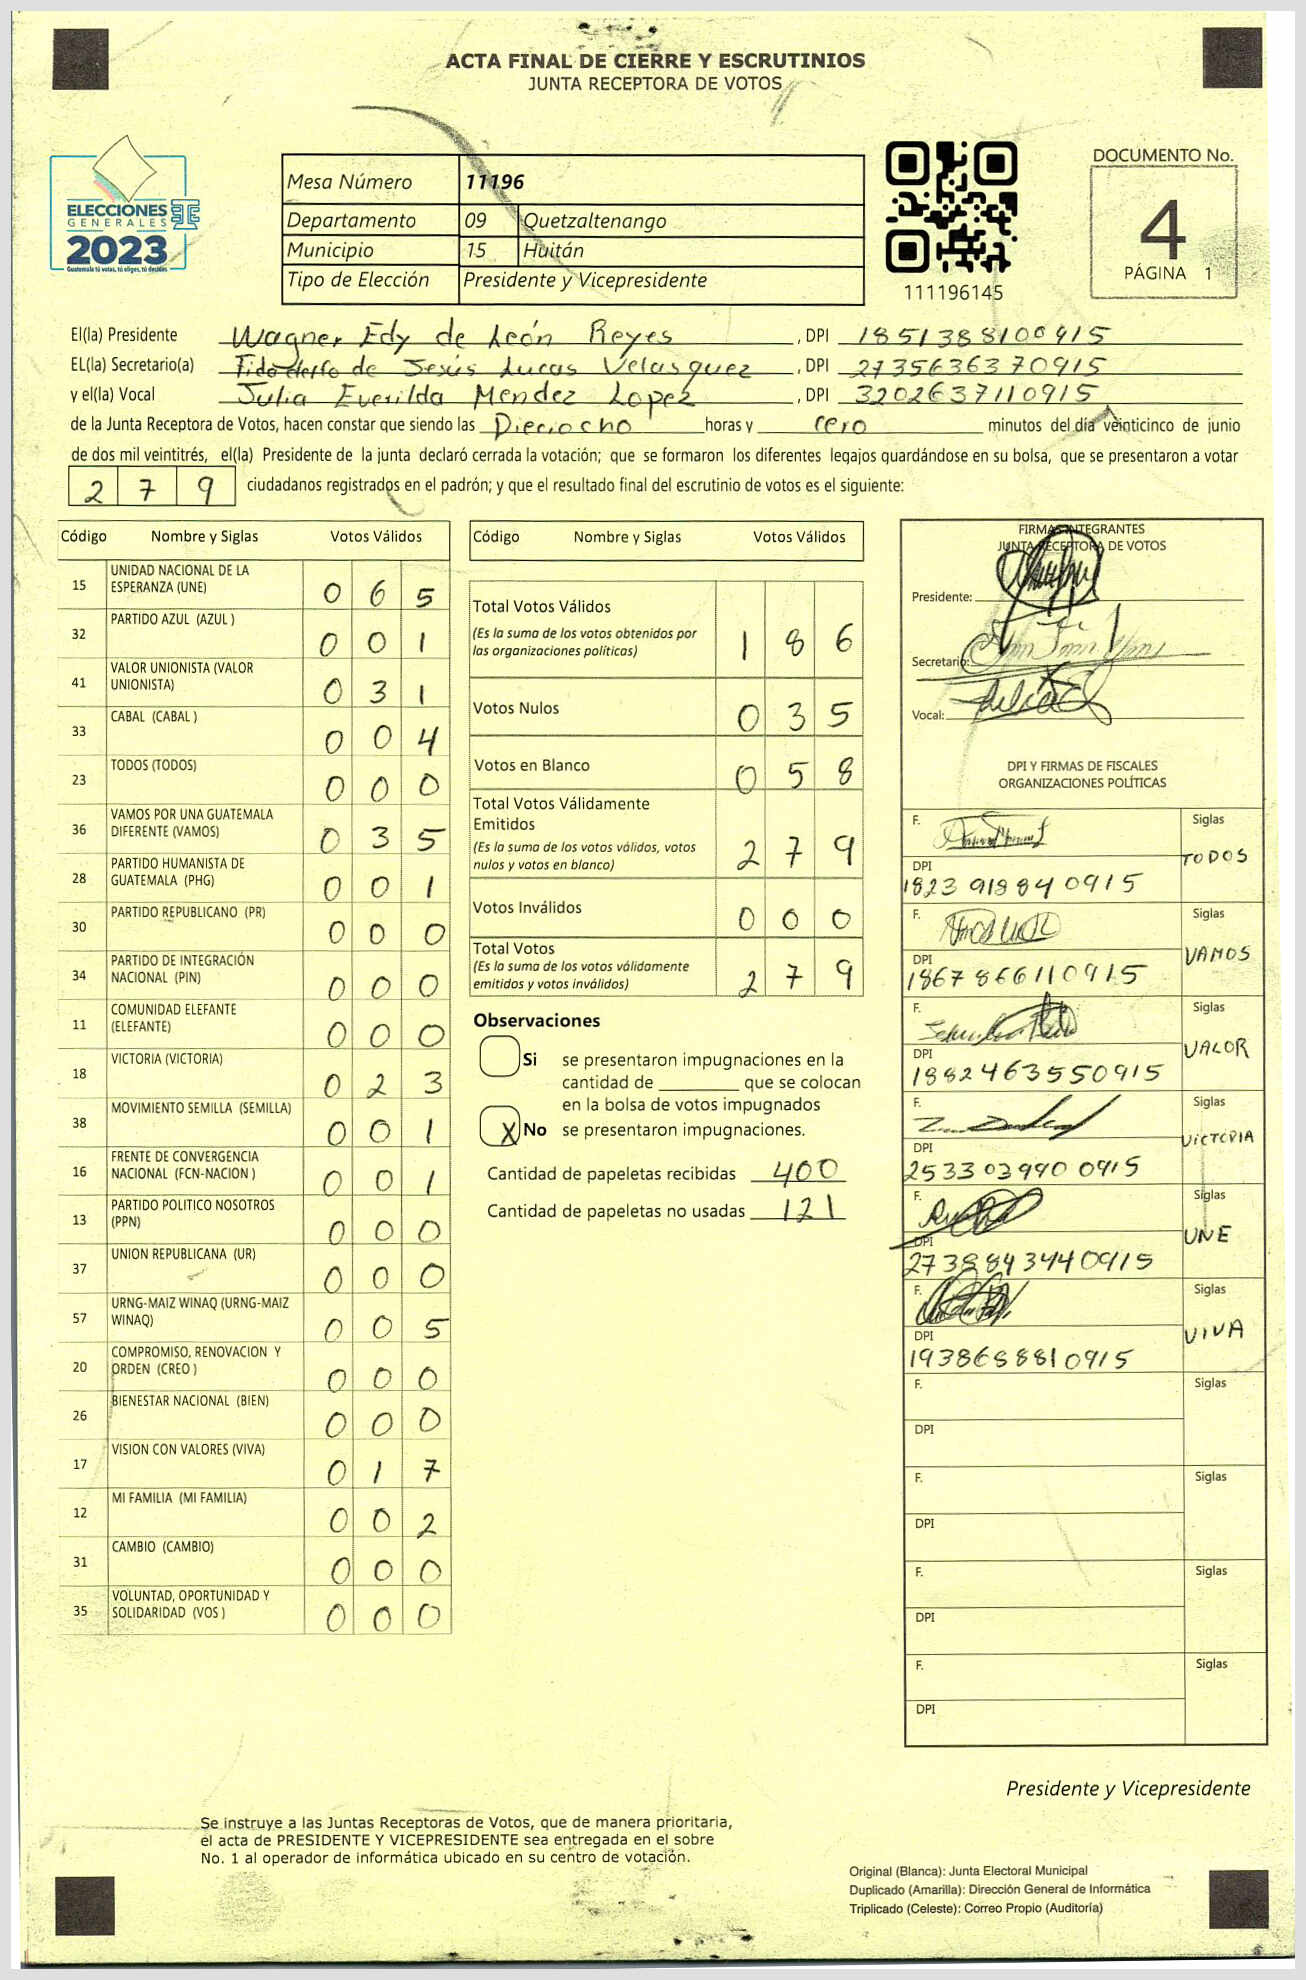 ACTA FINAL DE CIERRE Y ESCRUTINIOS
JUNTA RECEPTORA DE VOTOS
ELECCIONES
GENERALES
2023
Guatemala tú votas, tú eliges, tú decides
Mesa Número 11196
Departamento 09 Quetzaltenango
Municipio 15 Huitán
Tipo de Elección Presidente y Vicepresidente
111196145
DOCUMENTO No.
4
PÁGINA 1
El(la) Presidente Wagner Edy de León Reyes, DPI 1851388100915
EL(la) Secretario(a) de Jesús Lucas Velasquez, DPI 2735636370915
y el(la) Vocal Julia Everilda Mendez Lopez, DPI 3202637110915
de la Junta Receptora de Votos, hacen constar que siendo las Dieciocho horas y cero minutos del día veinticinco de junio
de dos mil veintitrés, el(la) Presidente de la junta declaró cerrada la votación; que se formaron los diferentes legajos guardándose en su bolsa, que se presentaron a votar
279 ciudadanos registrados en el padrón; y que el resultado final del escrutinio de votos es el siguiente:
Código Nombre y Siglas Votos Válidos
15 UNIDAD NACIONAL DE LA ESPERANZA (UNE) 0 6 5
32 PARTIDO AZUL (AZUL ) 0 0 1
41 VALOR UNIONISTA (VALOR UNIONISTA) 0 3 1
33 CABAL (CABAL ) 0 0 4
23 TODOS (TODOS) 0 0 0
36 VAMOS POR UNA GUATEMALA DIFERENTE (VAMOS) 0 3 5
28 PARTIDO HUMANISTA DE GUATEMALA (PHG) 0 0 1
30 PARTIDO REPUBLICANO (PR) 0 0 0
34 PARTIDO DE INTEGRACIÓN NACIONAL (PIN) 0 0 0
11 COMUNIDAD ELEFANTE (ELEFANTE) 0 0 0
18 VICTORIA (VICTORIA) 0 2 3
38 MOVIMIENTO SEMILLA (SEMILLA) 0 0 1
16 FRENTE DE CONVERGENCIA NACIONAL (FCN-NACION ) 0 0 1
13 PARTIDO POLITICO NOSOTROS (PPN) 0 0 0
37 UNION REPUBLICANA (UR) 0 0 0
57 URNG-MAIZ WINAQ (URNG-MAIZ WINAQ) 0 0 5
20 COMPROMISO, RENOVACION Y ORDEN (CREO ) 0 0 0
26 BIENESTAR NACIONAL (BIEN) 0 0 0
17 VISION CON VALORES (VIVA) 0 1 7
12 MI FAMILIA (MI FAMILIA) 0 0 2
31 CAMBIO (CAMBIO) 0 0 0
35 VOLUNTAD, OPORTUNIDAD Y SOLIDARIDAD (VOS ) 0 0 0
Código Nombre y Siglas Votos Válidos
Total Votos Válidos 1 8 6
(Es la suma de los votos obtenidos por
las organizaciones políticas)
Votos Nulos 0 3 5
Votos en Blanco 0 5 8
Total Votos Válidamente
Emitidos 2 7 9
(Es la suma de los votos válidos, votos
nulos y votos en blanco)
Votos Inválidos 0 0 0
Total Votos 2 7 9
(Es la suma de los votos válidamente
emitidos y votos inválidos)
Observaciones
Si se presentaron impugnaciones en la
cantidad de ________ que se colocan
en la bolsa de votos impugnados
X No se presentaron impugnaciones.
Cantidad de papeletas recibidas 400
Cantidad de papeletas no usadas 121
FIRMAS INTEGRANTES
JUNTA RECEPTORA DE VOTOS
Presidente:
Secretario:
Vocal:
DPI Y FIRMAS DE FISCALES
ORGANIZACIONES POLÍTICAS
F. Siglas
TODOS
DPI
1823 91884 0915
F. Siglas
VAMOS
DPI
1867 86611 0915
F. Siglas
VALOR
DPI
1882463550915
F. Siglas
VICTORIA
DPI
2533 03940 0915
F. Siglas
UNE
DPI
2738843440915
F. Siglas
VIVA
DPI
1938688810915
F. Siglas
DPI
F. Siglas
DPI
F. Siglas
DPI
F. Siglas
DPI
Presidente y Vicepresidente
Se instruye a las Juntas Receptoras de Votos, que de manera prioritaria,
el acta de PRESIDENTE Y VICEPRESIDENTE sea entregada en el sobre
No. 1 al operador de informática ubicado en su centro de votación.
Original (Blanca): Junta Electoral Municipal
Duplicado (Amarilla): Dirección General de Informática
Triplicado (Celeste): Correo Propio (Auditoría)